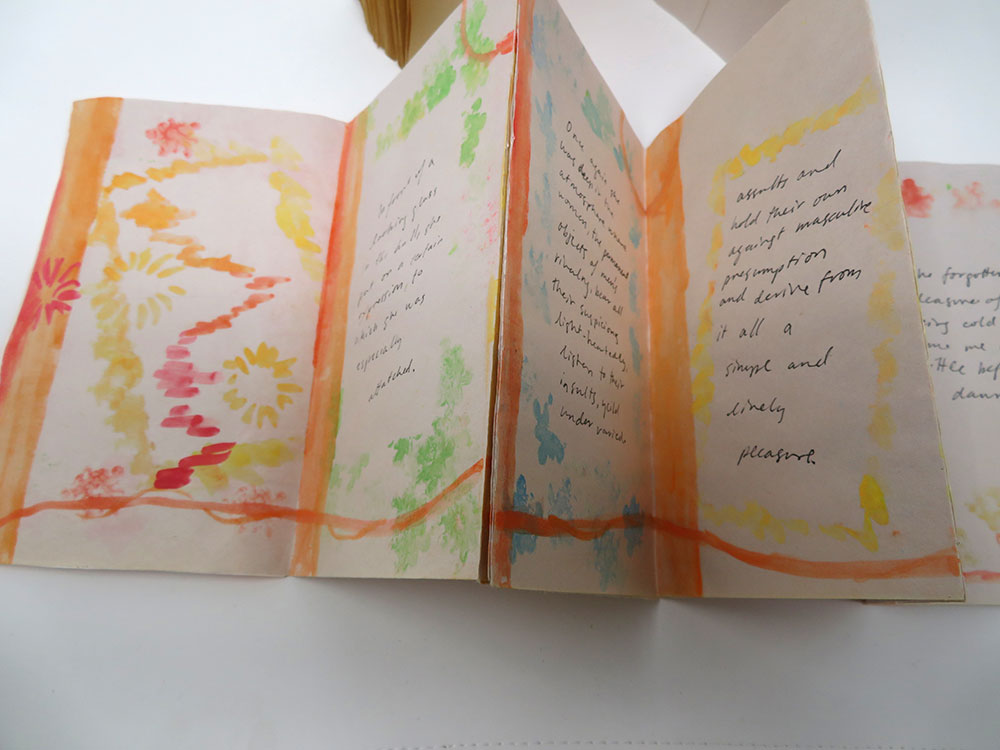 In front of a
looking glass
in the hall, she
put on a certain
expression, to
which she was
especially
attatched.
Once again she
was deep in the
atmosphere where
women, the
objects of men's
rivalry, bear all
their suspicions
light-heartedly,
listen to their
insults, yield
under varied
assults and
hold their own
against masculine
presumption
and derive from
it all a
simple and
lively
pleasure.
he forgotten
leasure of
ing cold
me
ttle bef